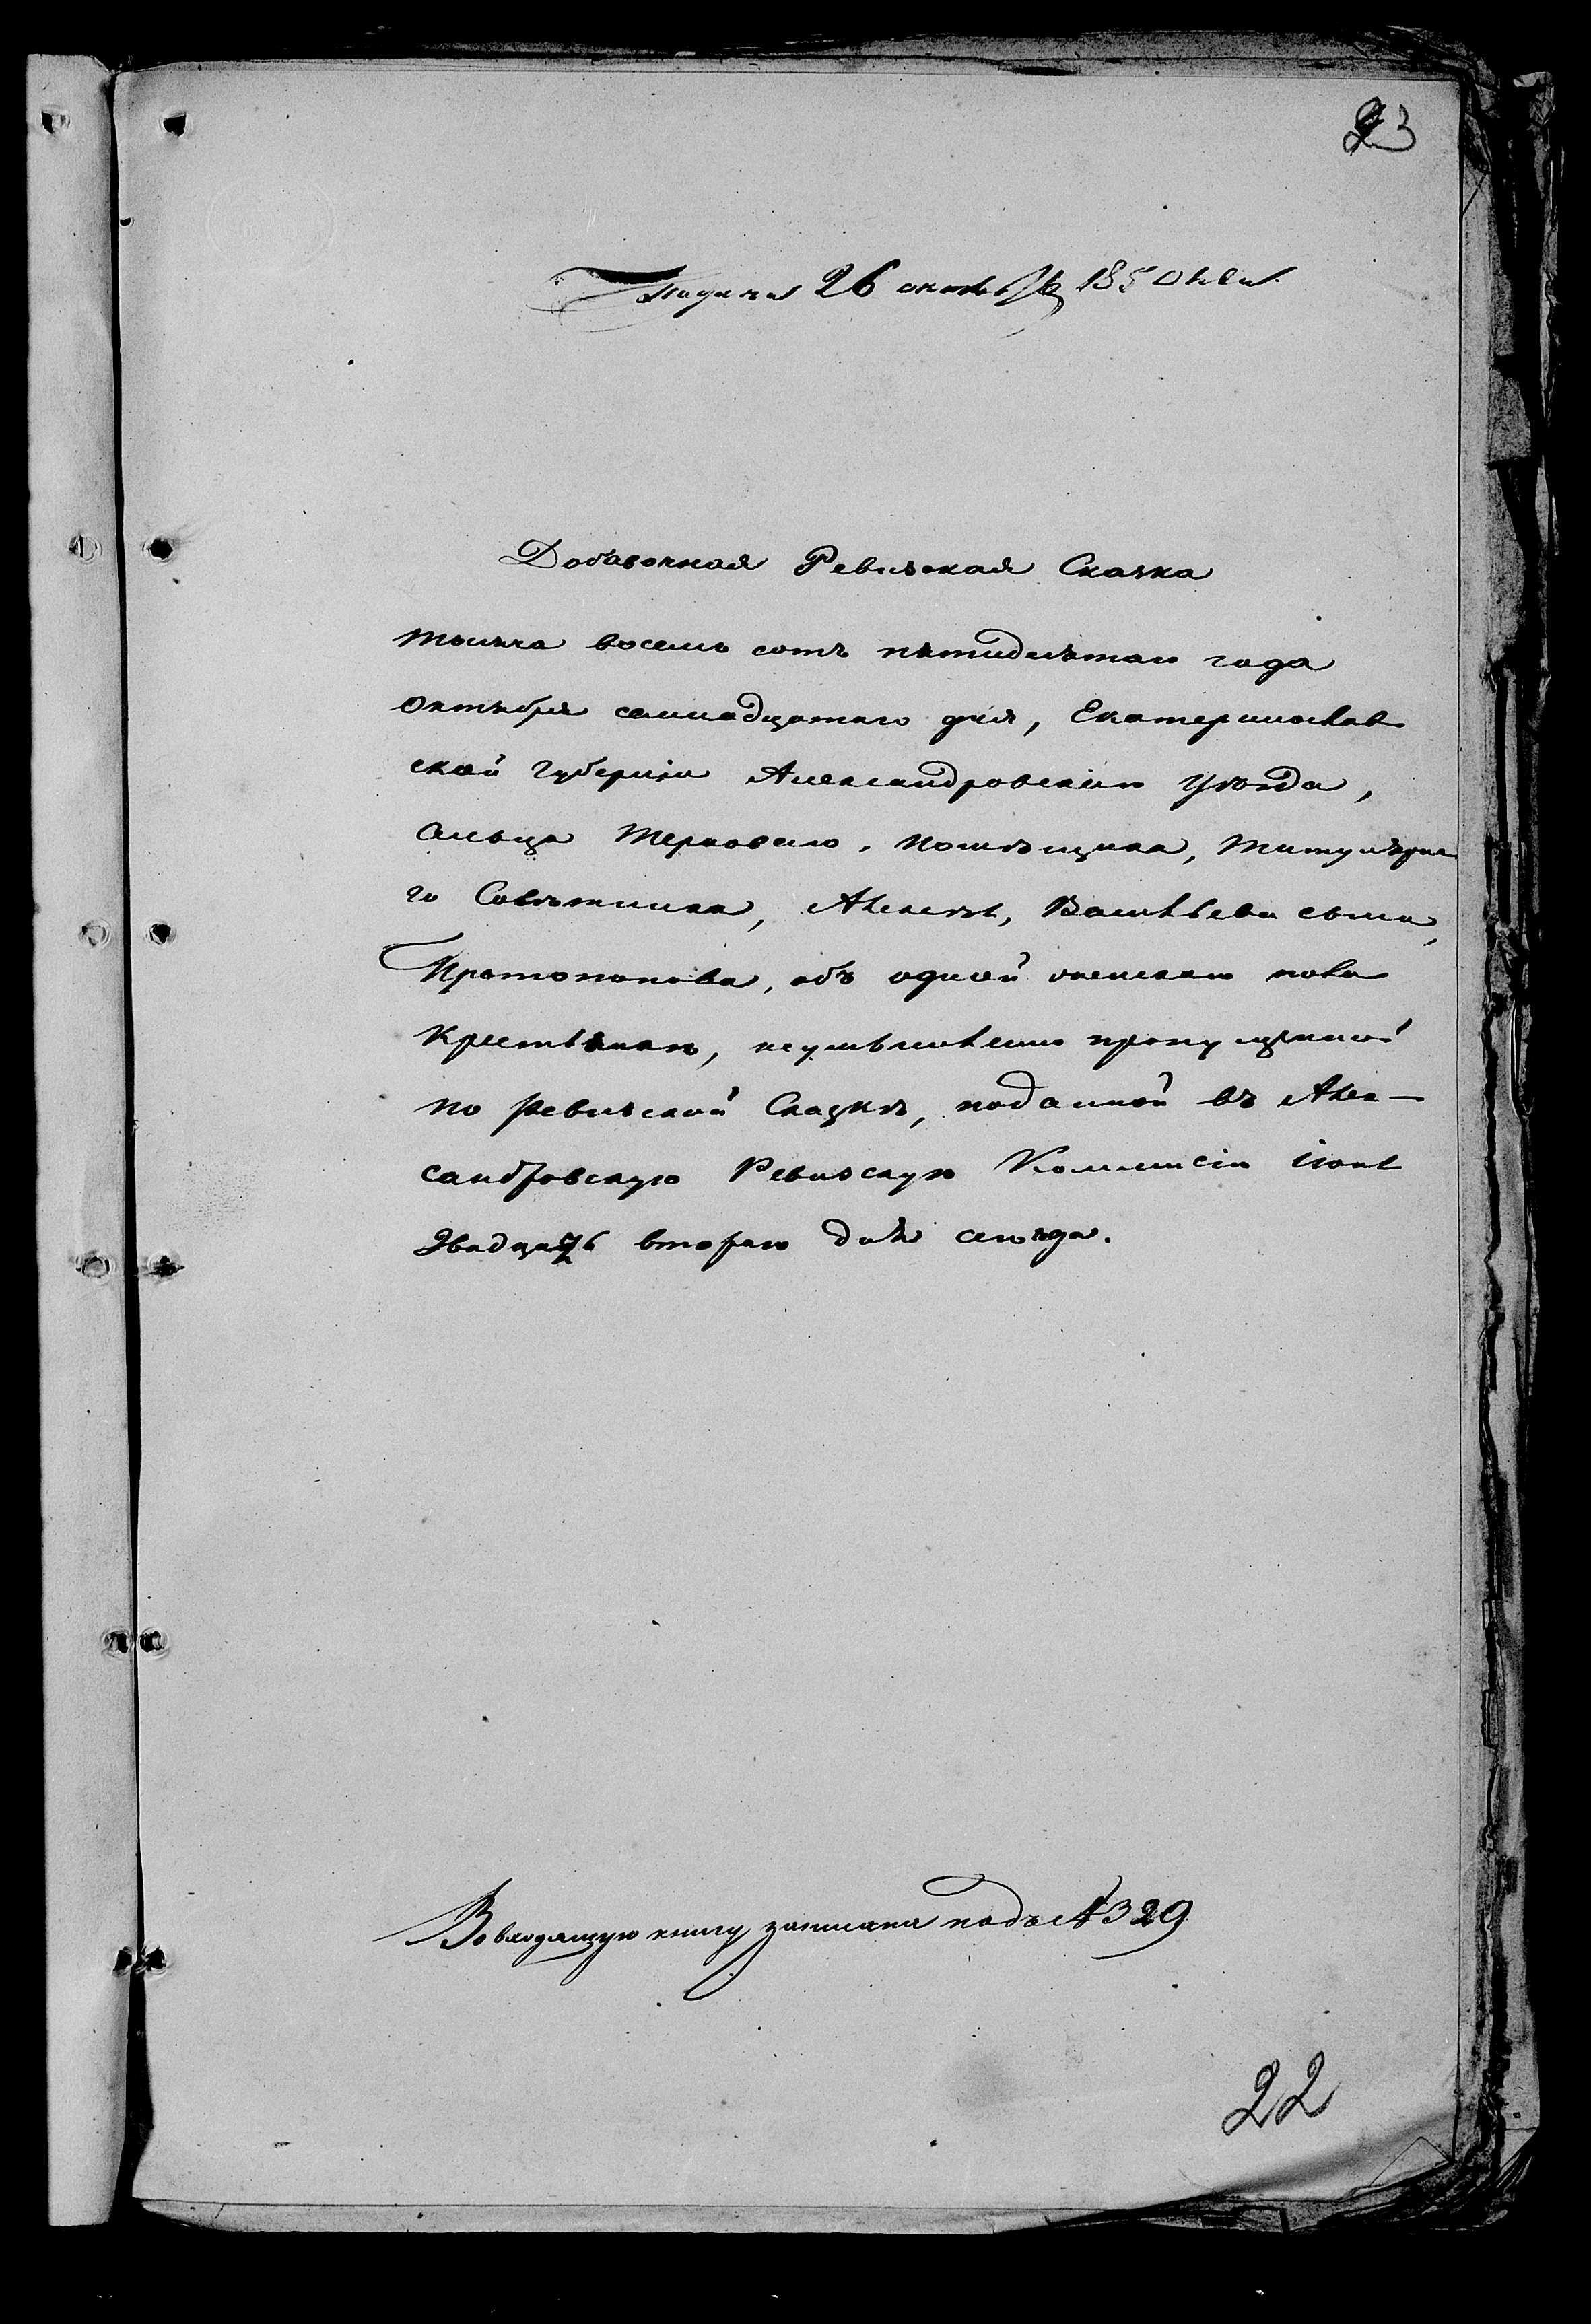 23
Подана 26 октября 1850 года
Добавочная Ревизская Сказка
тысяча восемь сотъ пятидесятаго года
Октября семнадцатаго дня, Екатеринослав
ской Губерніи Александровскаго Уѣзда,
сельца Терноваго, помѣщика, Титулярна
го Совѣтника, Алексѣя, Васильева сына,
Протопопова, объ одной женскаго пола
крестьянкѣ, неумышленно пропущенной
по ревизской Сказкѣ, поданной въ Алек-
сандровскую Ревизскую Коммисію
двадцать втораго дня сего года.
Во входящую книгу записана подъ № 329
22